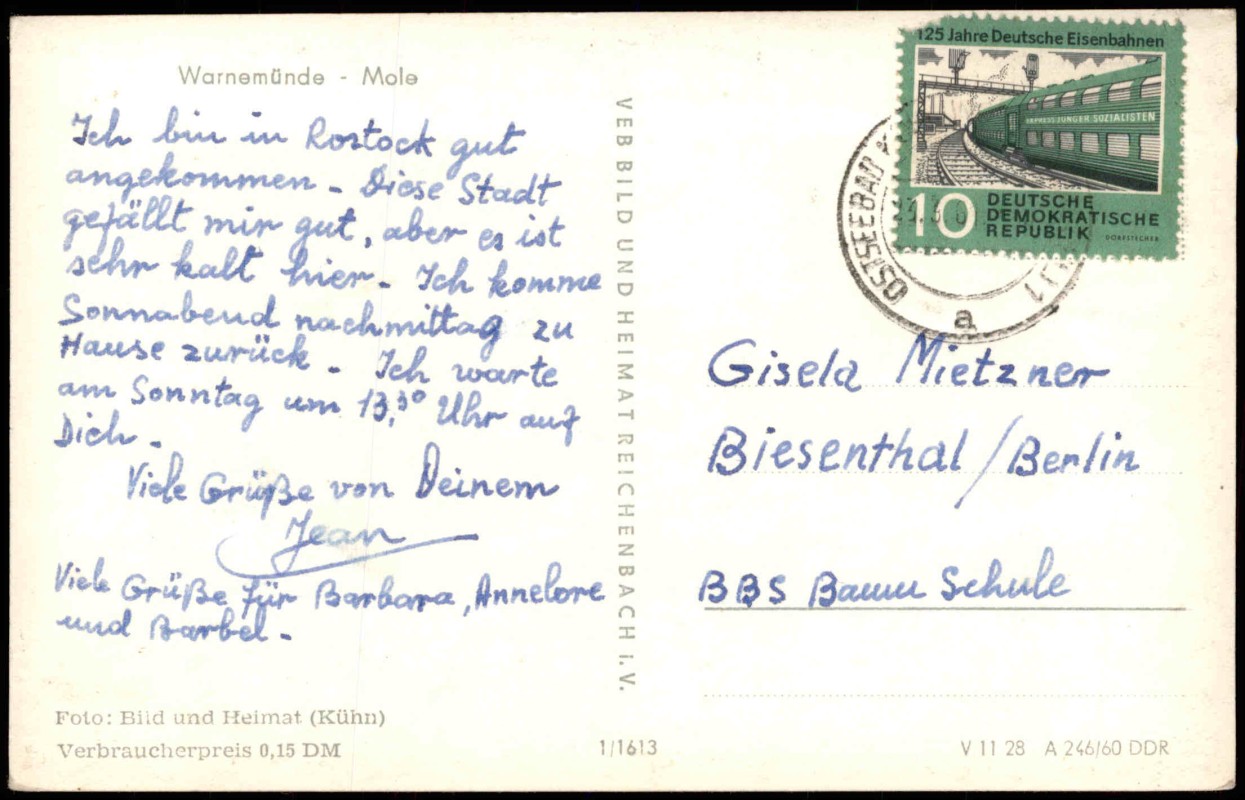 Warnemünde - Mole
Ich bin in Rostock gut
angekommen - Diese Stadt
gefällt mir gut, aber es ist
sehr kalt hier - Ich komme
Sonnabend nachmittag zu
Hause zurück - Ich warte
am Sonntag um 13,30 Uhr auf
Dich -
Viele Grüße von Deinem
Jean
Viele Grüße für Barbara, Annelore
und Barbel -
Foto: Bild und Heimat (Kühn)
Verbraucherpreis 0,15 DM
VEB BILD UND HEIMAT REICHENBACH I.V.
1/1613
125 Jahre Deutsche Eisenbahnen
EXPRESS JUNGER SOZIALISTEN
10
DEUTSCHE
DEMOKRATISCHE
REPUBLIK
DORFSTECHER
OSTSEEBAD
a
Gisela Mietzner
Biesenthal / Berlin
BBS Baum Schule
V 11 28 A 246/60 DDR